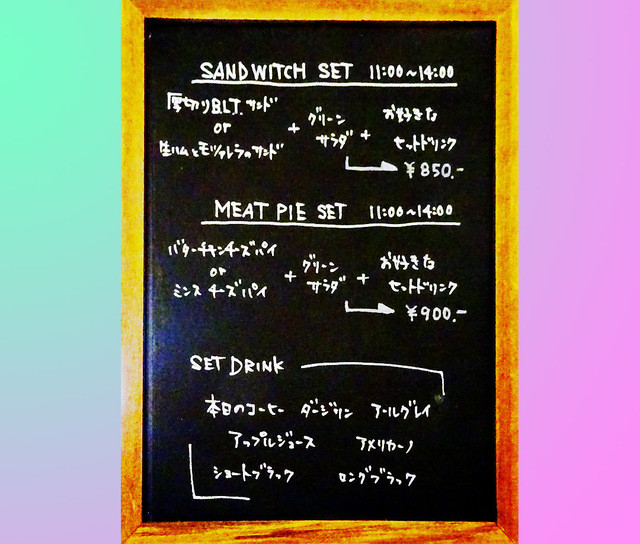 SANDWITCH SET 11:00〜14:00
厚切りB.L.T.サンド
or
生ハムとモツァレラのサンド
+
グリーン
サラダ
+
お好きな
セットドリンク
¥850.-
MEAT PIE SET 11:00〜14:00
バターチキンチーズパイ
or
ミンスチーズパイ
+
グリーン
サラダ
+
お好きな
セットドリンク
¥900.-
SET DRINK
本日のコーヒー ダージリン アールグレイ
アップルジュース アメリカーノ
ショートブラック ロングブラック